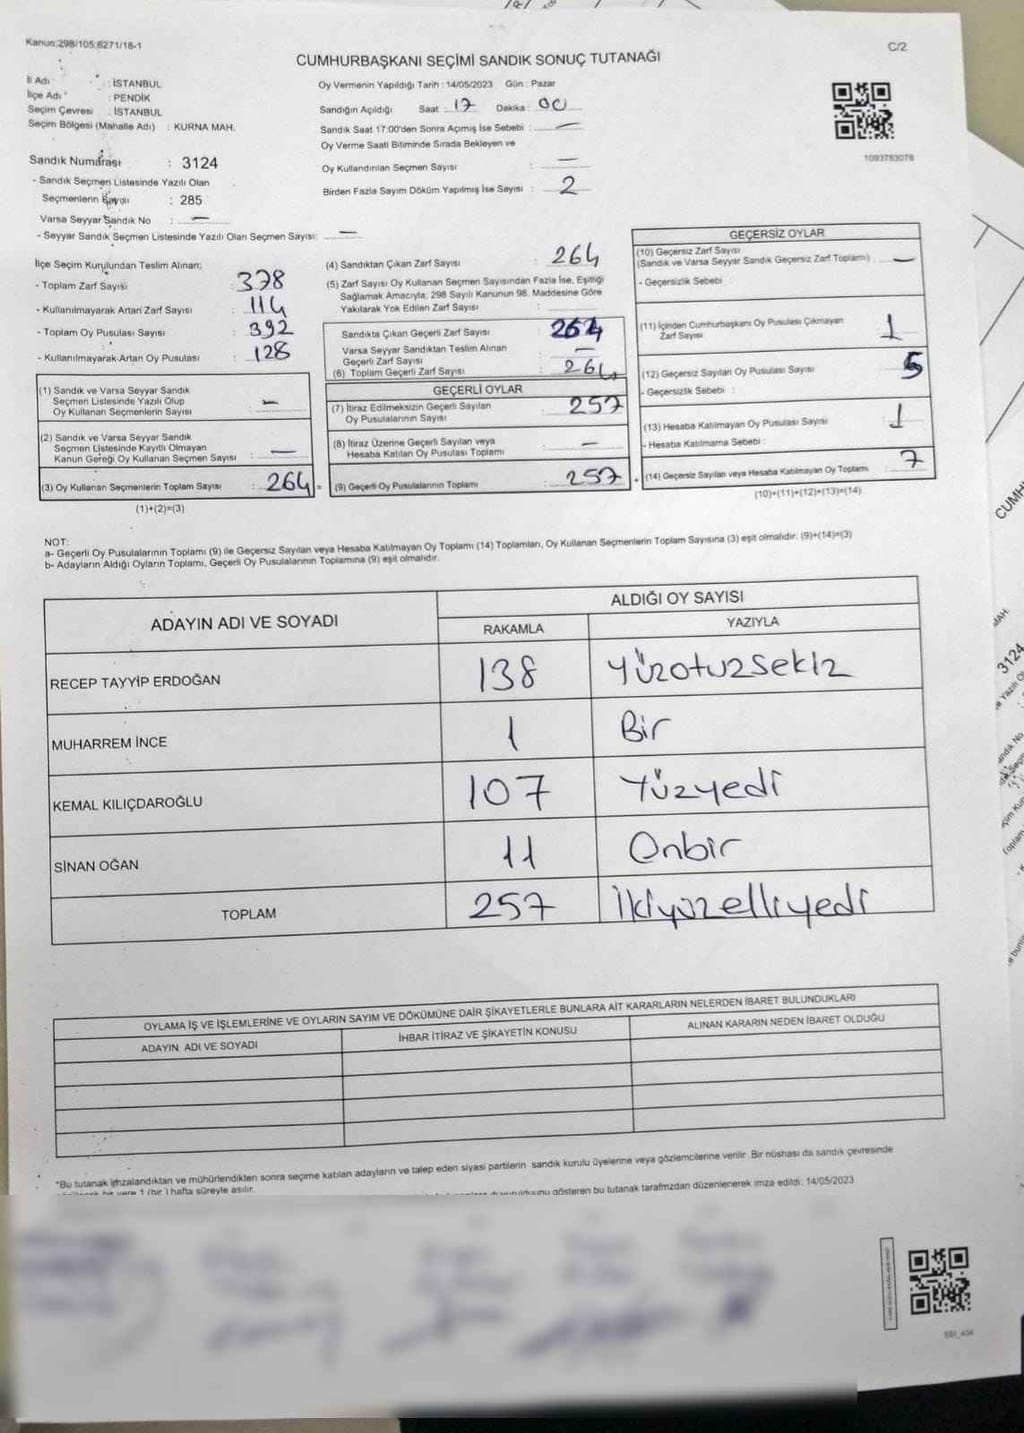 Kanun:298/105;6271/18-1
C/2
CUMHURBAŞKANI SEÇİMİ SANDIK SONUÇ TUTANAĞI
İl Adı : İSTANBUL
İlçe Adı : PENDİK
Seçim Çevresi : İSTANBUL
Seçim Bölgesi (Mahalle Adı) : KURNA MAH.
Oy Vermenin Yapıldığı Tarih : 14/05/2023 Gün : Pazar
Sandığın Açıldığı Saat : 17 Dakika : 00
Sandık Saat 17:00'den Sonra Açımış İse Sebebi : —
Oy Verme Saati Bitiminde Sırada Bekleyen ve
Oy Kullandırılan Seçmen Sayısı : —
Birden Fazla Sayım Döküm Yapılmış İse Sayısı : 2
1093783078
Sandık Numarası : 3124
- Sandık Seçmen Listesinde Yazılı Olan
Seçmenlerin Sayısı : 285
Varsa Seyyar Sandık No : —
- Seyyar Sandık Seçmen Listesinde Yazılı Olan Seçmen Sayısı: —
İlçe Seçim Kurulundan Teslim Alınan;
- Toplam Zarf Sayısı : 378
- Kullanılmayarak Artan Zarf Sayısı : 114
- Toplam Oy Pusulası Sayısı : 392
- Kullanılmayarak Artan Oy Pusulası : 128
(1) Sandık ve Varsa Seyyar Sandık
Seçmen Listesinde Yazılı Olup
Oy Kullanan Seçmenlerin Sayısı : —
(2) Sandık ve Varsa Seyyar Sandık
Seçmen Listesinde Kayıtlı Olmayan
Kanun Gereği Oy Kullanan Seçmen Sayısı : —
(3) Oy Kullanan Seçmenlerin Toplam Sayısı : 264
(1)+(2)=(3)
(4) Sandıktan Çıkan Zarf Sayısı : 264
(5) Zarf Sayısı Oy Kullanan Seçmen Sayısından Fazla İse, Eşitliği
Sağlamak Amacıyla; 298 Sayılı Kanunun 98. Maddesine Göre
Yakılarak Yok Edilen Zarf Sayısı :
Sandıkta Çıkan Geçerli Zarf Sayısı : 264
Varsa Seyyar Sandıktan Teslim Alınan
Geçerli Zarf Sayısı : —
(6) Toplam Geçerli Zarf Sayısı : 264
GEÇERLİ OYLAR
(7) İtiraz Edilmeksizin Geçerli Sayılan
Oy Pusulalarının Sayısı : 257
(8) İtiraz Üzerine Geçerli Sayılan veya
Hesaba Katılan Oy Pusulası Toplamı : —
(9) Geçerli Oy Pusulalarının Toplamı : 257
GEÇERSİZ OYLAR
(10) Geçersiz Zarf Sayısı
(Sandık ve Varsa Seyyar Sandık Geçersiz Zarf Toplamı) : —
- Geçersizlik Sebebi :
(11) İçinden Cumhurbaşkanı Oy Pusulası Çıkmayan
Zarf Sayısı : 1
(12) Geçersiz Sayılan Oy Pusulası Sayısı : 5
- Geçersizlik Sebebi :
(13) Hesaba Katılmayan Oy Pusulası Sayısı : 1
- Hesaba Katılmama Sebebi :
(14) Geçersiz Sayılan veya Hesaba Katılmayan Oy Toplamı : 7
(10)+(11)+(12)+(13)=(14)
NOT:
a- Geçerli Oy Pusulalarının Toplamı (9) ile Geçersiz Sayılan veya Hesaba Katılmayan Oy Toplamı (14) Toplamları, Oy Kullanan Seçmenlerin Toplam Sayısına (3) eşit olmalıdır. (9)+(14)=(3)
b- Adayların Aldığı Oyların Toplamı, Geçerli Oy Pusulalarının Toplamına (9) eşit olmalıdır.
ADAYIN ADI VE SOYADI
ALDIĞI OY SAYISI
RAKAMLA YAZIYLA
RECEP TAYYİP ERDOĞAN 138 Yüzotuzsekiz
MUHARREM İNCE 1 Bir
KEMAL KILIÇDAROĞLU 107 Yüzyedi
SİNAN OĞAN 11 Onbir
TOPLAM 257 İkiyüzelliyedi
OYLAMA İŞ VE İŞLEMLERİNE VE OYLARIN SAYIM VE DÖKÜMÜNE DAİR ŞİKAYETLERLE BUNLARA AİT KARARLARIN NELERDEN İBARET BULUNDUKLARI
ADAYIN ADI VE SOYADI İHBAR İTİRAZ VE ŞİKAYETİN KONUSU ALINAN KARARIN NEDEN İBARET OLDUĞU
*Bu tutanak imzalandıktan ve mühürlendikten sonra seçime katılan adayların ve talep eden siyasi partilerin sandık kurulu üyelerine veya gözlemcilerine verilir. Bir nüshası da sandık çevresinde
1 (bir) hafta süreyle asılır.
gösteren bu tutanak tarafımızdan düzenlenerek imza edildi. 14/05/2023
CUMH
MAH.
3124